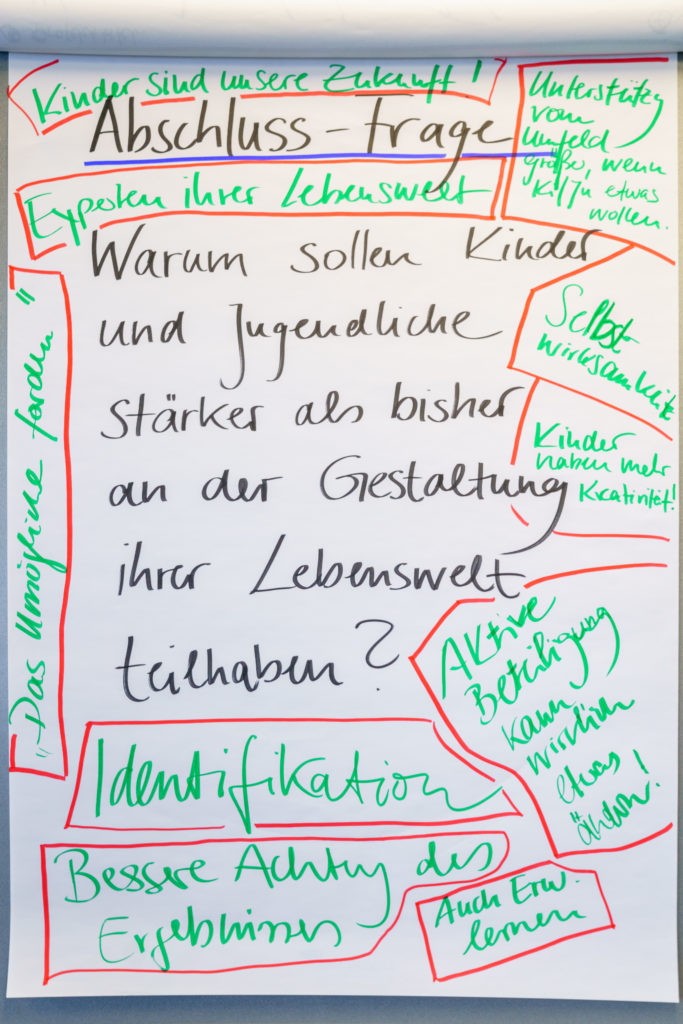 Kinder sind unsere Zukunft!
Abschluss-Frage
Experten ihrer Lebenswelt
Unterstützg
vom
Umfeld
größer, wenn
Ki/Ju etwas
wollen.
Warum sollen Kinder
und Jugendliche
stärker als bisher
an der Gestaltung
ihrer Lebenswelt
teilhaben?
"Das Unmögliche fordern"
Selbst-
wirksamkeit
Kinder
haben mehr
Kreativität!
Aktive
Beteiligung
kann
wirklich
etwas
ändern!
Identifikation
Bessere Achtung des
Ergebnisses
Auch Erw.
lernen